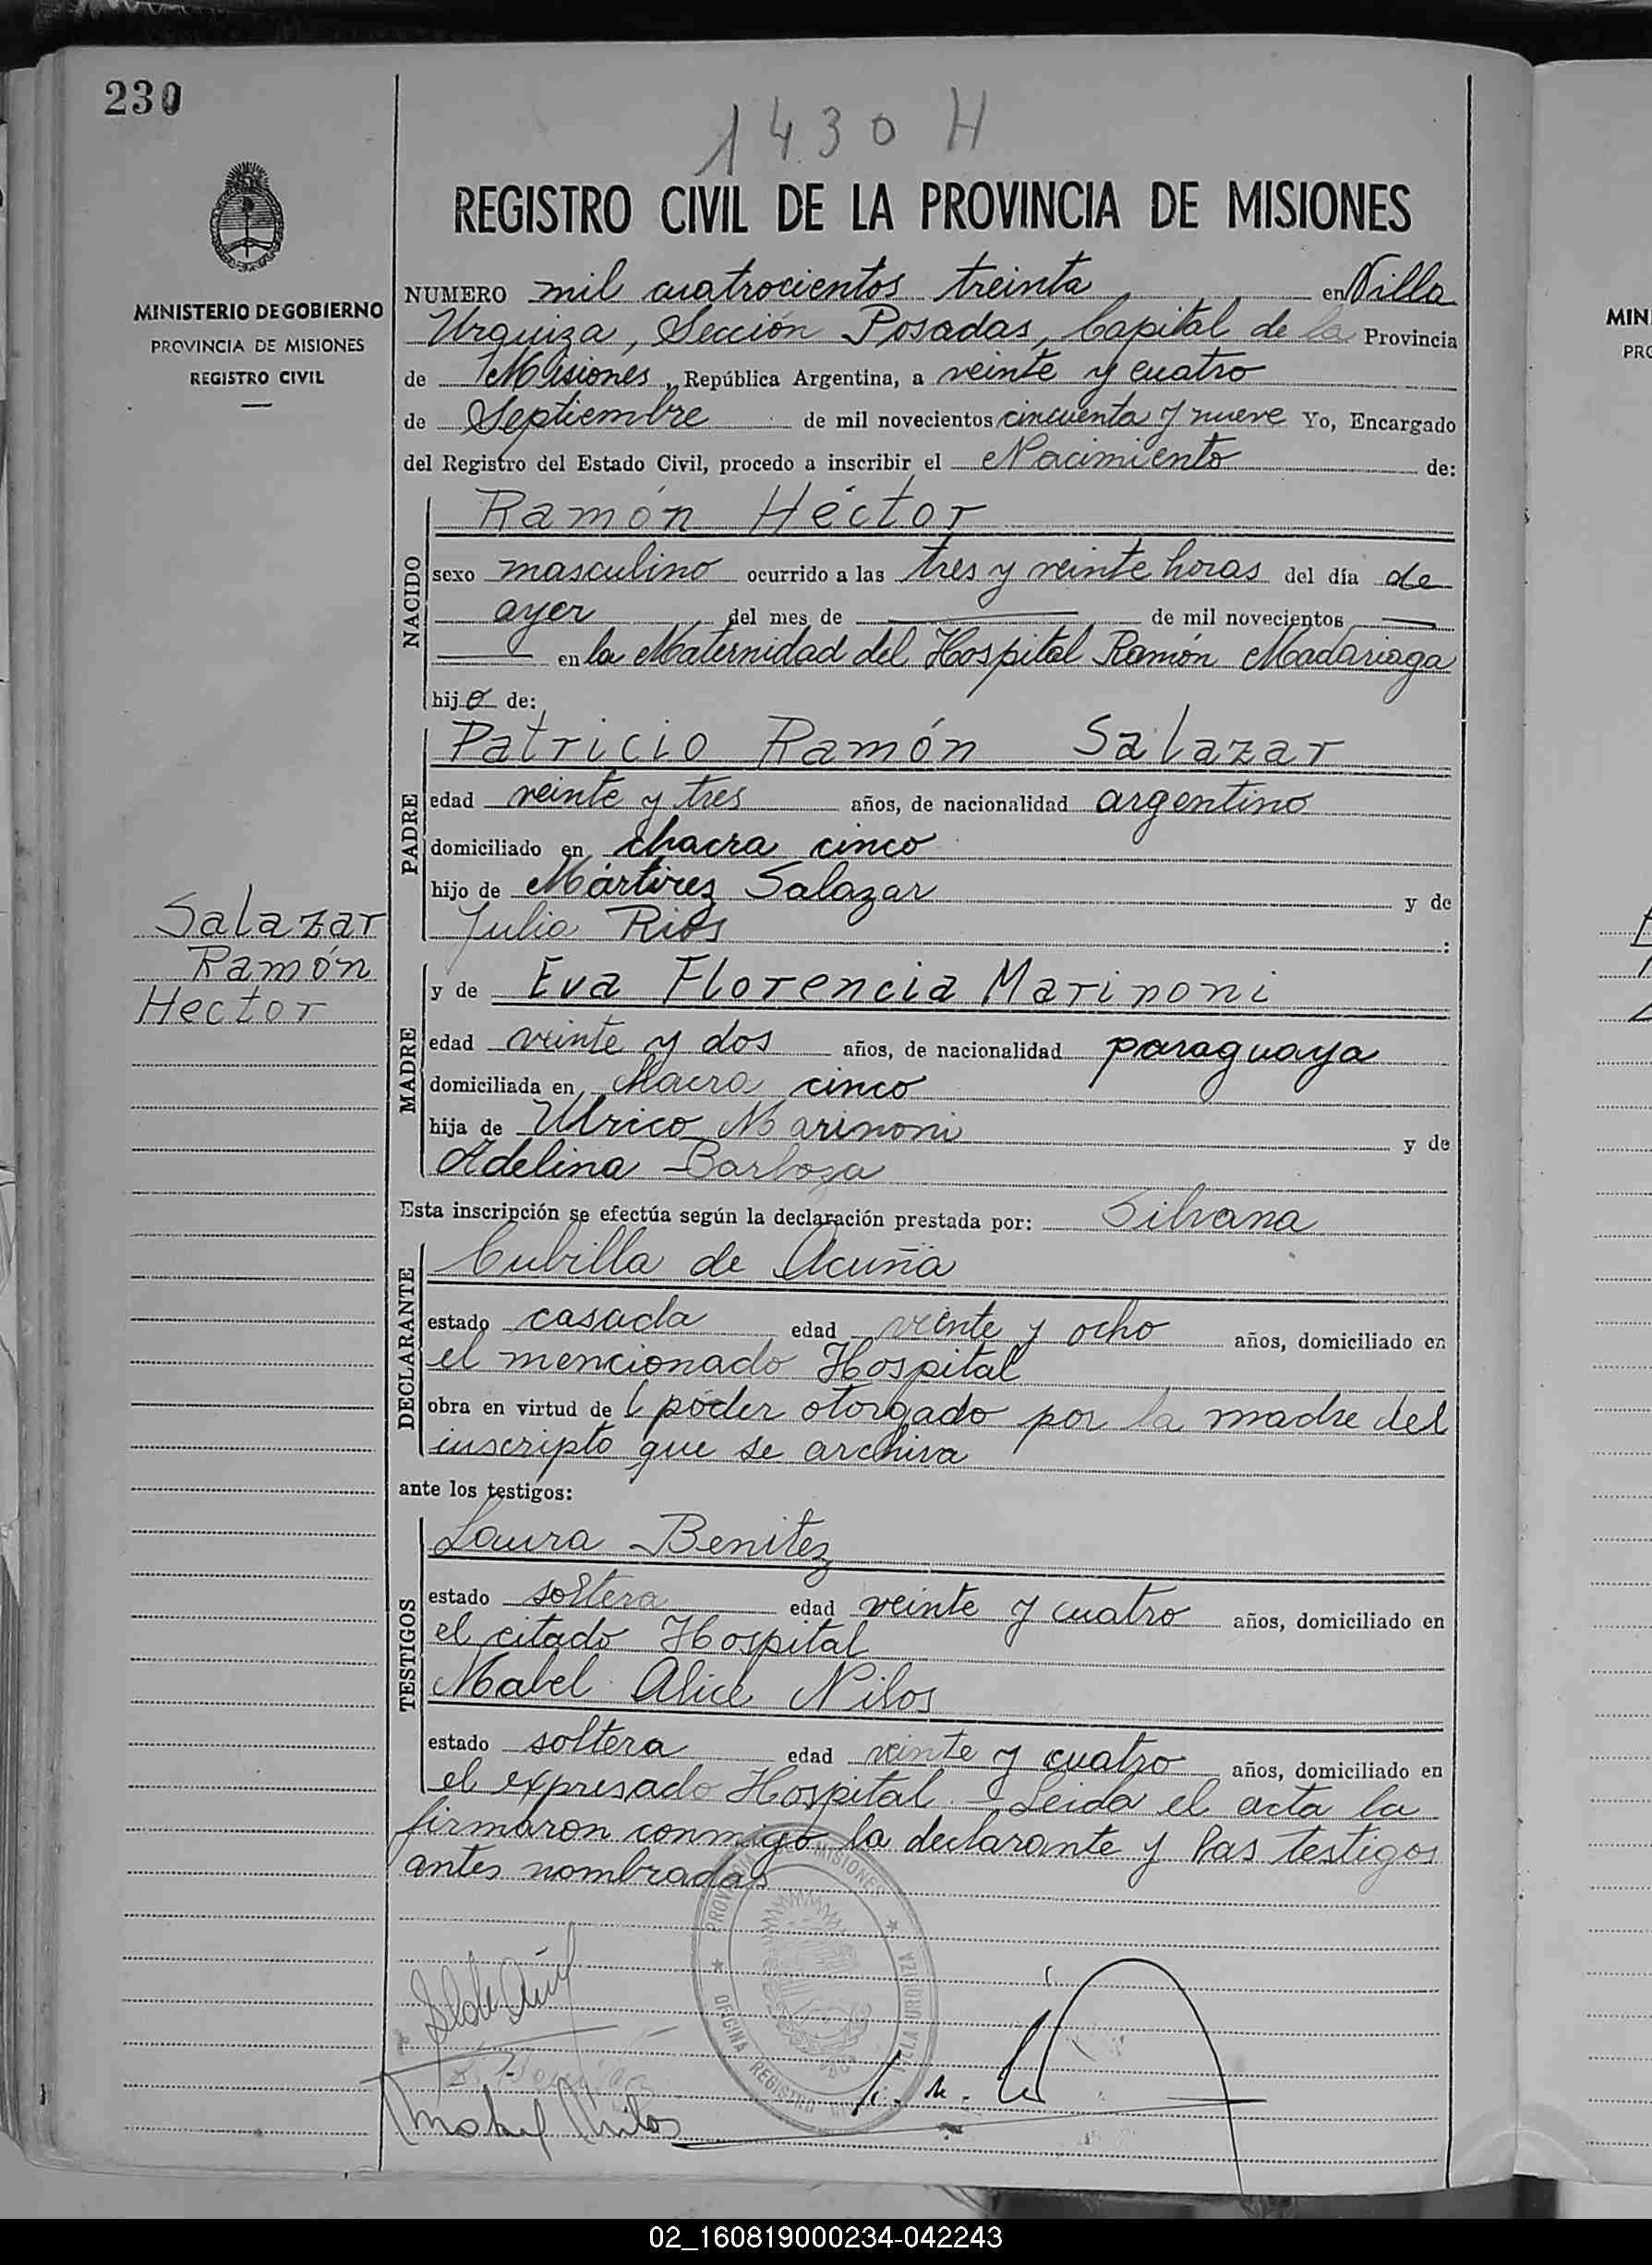 230
1430 H
REGISTRO CIVIL DE LA PROVINCIA DE MISIONES
MINISTERIO DE GOBIERNO
PROVINCIA DE MISIONES
REGISTRO CIVIL
NUMERO mil cuatrocientos treinta en Villa
Urquiza, Sección Posadas, Capital de la Provincia
de Misiones, República Argentina, a veinte y cuatro
de Septiembre de mil novecientos cincuenta y nueve Yo, Encargado
del Registro del Estado Civil, procedo a inscribir el Nacimiento de:
NACIDO
Ramón Héctor
sexo masculino ocurrido a las tres y veinte horas del día de
ayer del mes de de mil novecientos
en la Maternidad del Hospital Ramón Madariaga
hijo de:
PADRE
Patricio Ramón Salazar
edad veinte y tres años, de nacionalidad argentino
domiciliado en chacra cinco
hijo de Mártires Salazar y de
Julia Rios :
Salazar
Ramón
Hector
MADRE
y de Eva Florencia Marinoni
edad veinte y dos años, de nacionalidad paraguaya
domiciliada en chacra cinco
hija de Ulrico Marinoni y de
Adelina Barboza
Esta inscripción se efectúa según la declaración prestada por: Silvana
DECLARANTE
Cubilla de Acuña
estado casada edad veinte y ocho años, domiciliado en
el mencionado Hospital
obra en virtud del poder otorgado por la madre del
inscripto que se archiva
ante los testigos:
TESTIGOS
Laura Benitez
estado soltera edad veinte y cuatro años, domiciliado en
el citado Hospital
Mabel Alice Nilos
estado soltera edad veinte y cuatro años, domiciliado en
el expresado Hospital.- Leida el acta la
firmaron conmigo la declarante y las testigos
antes nombradas
PROVINCIA DE MISIONES
OFICINA REGISTRO
VILLA URQUIZA
Mabel Nilos
MIN
PRO
02_160819000234-042243